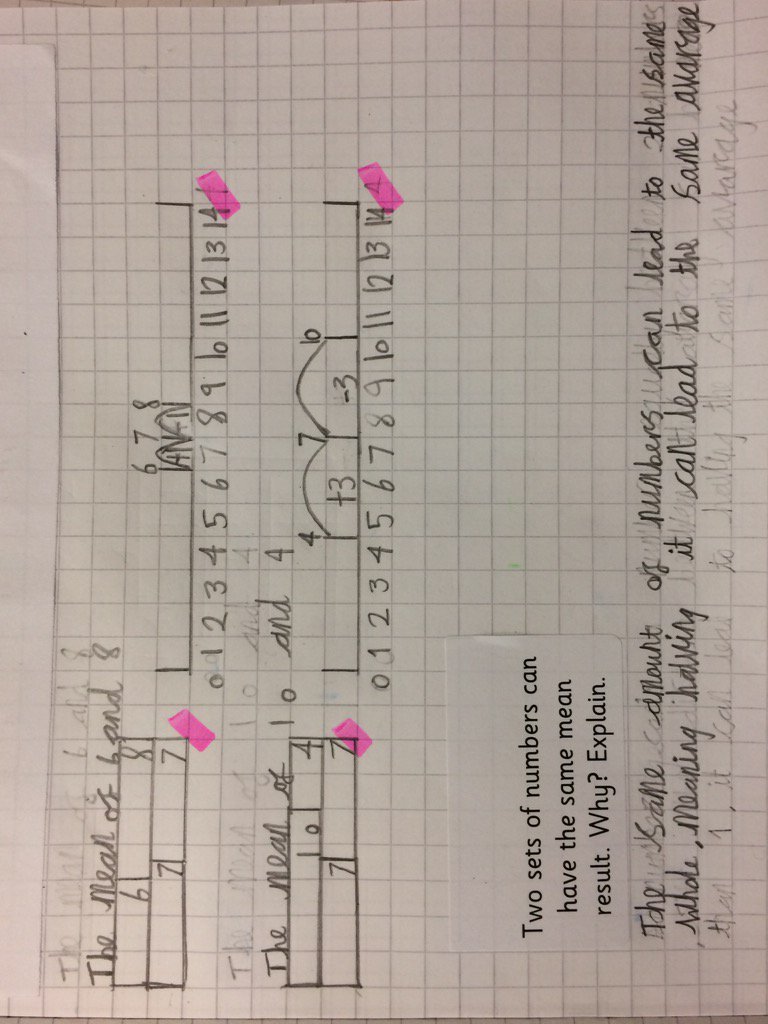 The mean of 6 and 8
6 8
7 7
6 7 8
0 1 2 3 4 5 6 7 8 9 10 11 12 13 14
The mean of 10 and 4
10 4
7 7
4 7 10
+3 -3
0 1 2 3 4 5 6 7 8 9 10 11 12 13 14
Two sets of numbers can
have the same mean
result. Why? Explain.
The same amount of numbers can lead to the same
whole, meaning halving it can lead to the same avarage